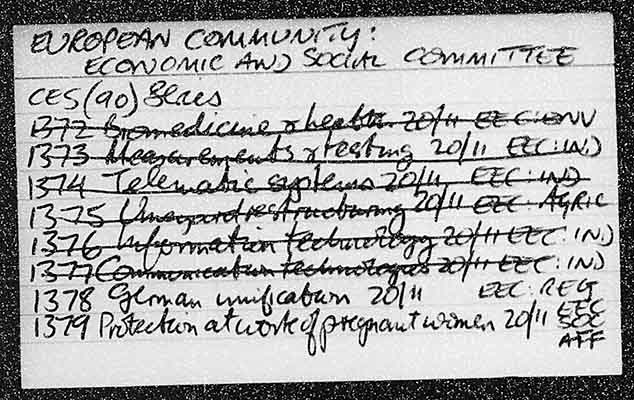 EUROPEAN COMMUNITY:
ECONOMIC AND SOCIAL COMMITTEE
CES(90) Series
1372 Biomedicine & health 20/11 EEC:ENV
1373 Measurements & testing 20/11 EEC:IND
1374 Telematic systems 20/11 EEC:IND
1375 Vineyard restructuring 20/11 EEC:AGRIC
1376 Information technology 20/11 EEC:IND
1377 Communication technologies 20/11 EEC:IND
1378 German unification 20/11 EEC:REG
1379 Protection at work of pregnant women 20/11 EEC
SOC
AFF